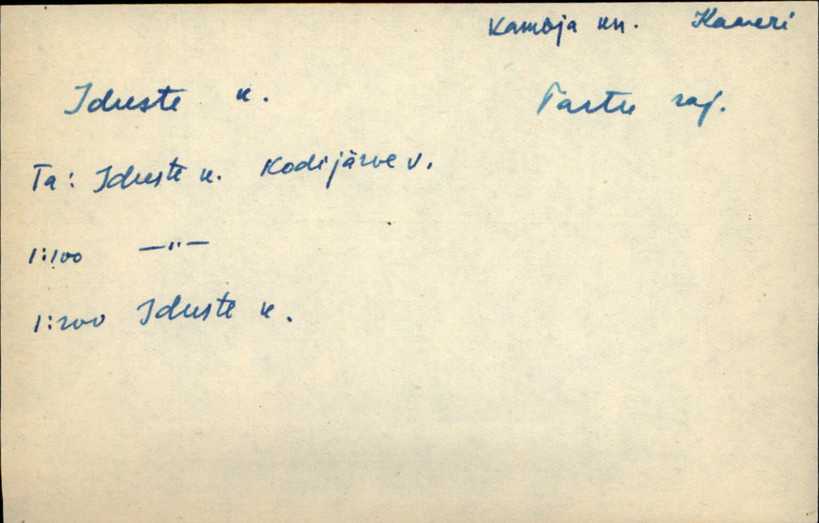 Kambja kn. Kaveri
Iduste k. Tartu raj.
Ta: Iduste k. Kodijärve v.
1:100 —"—
1:200 Iduste k.